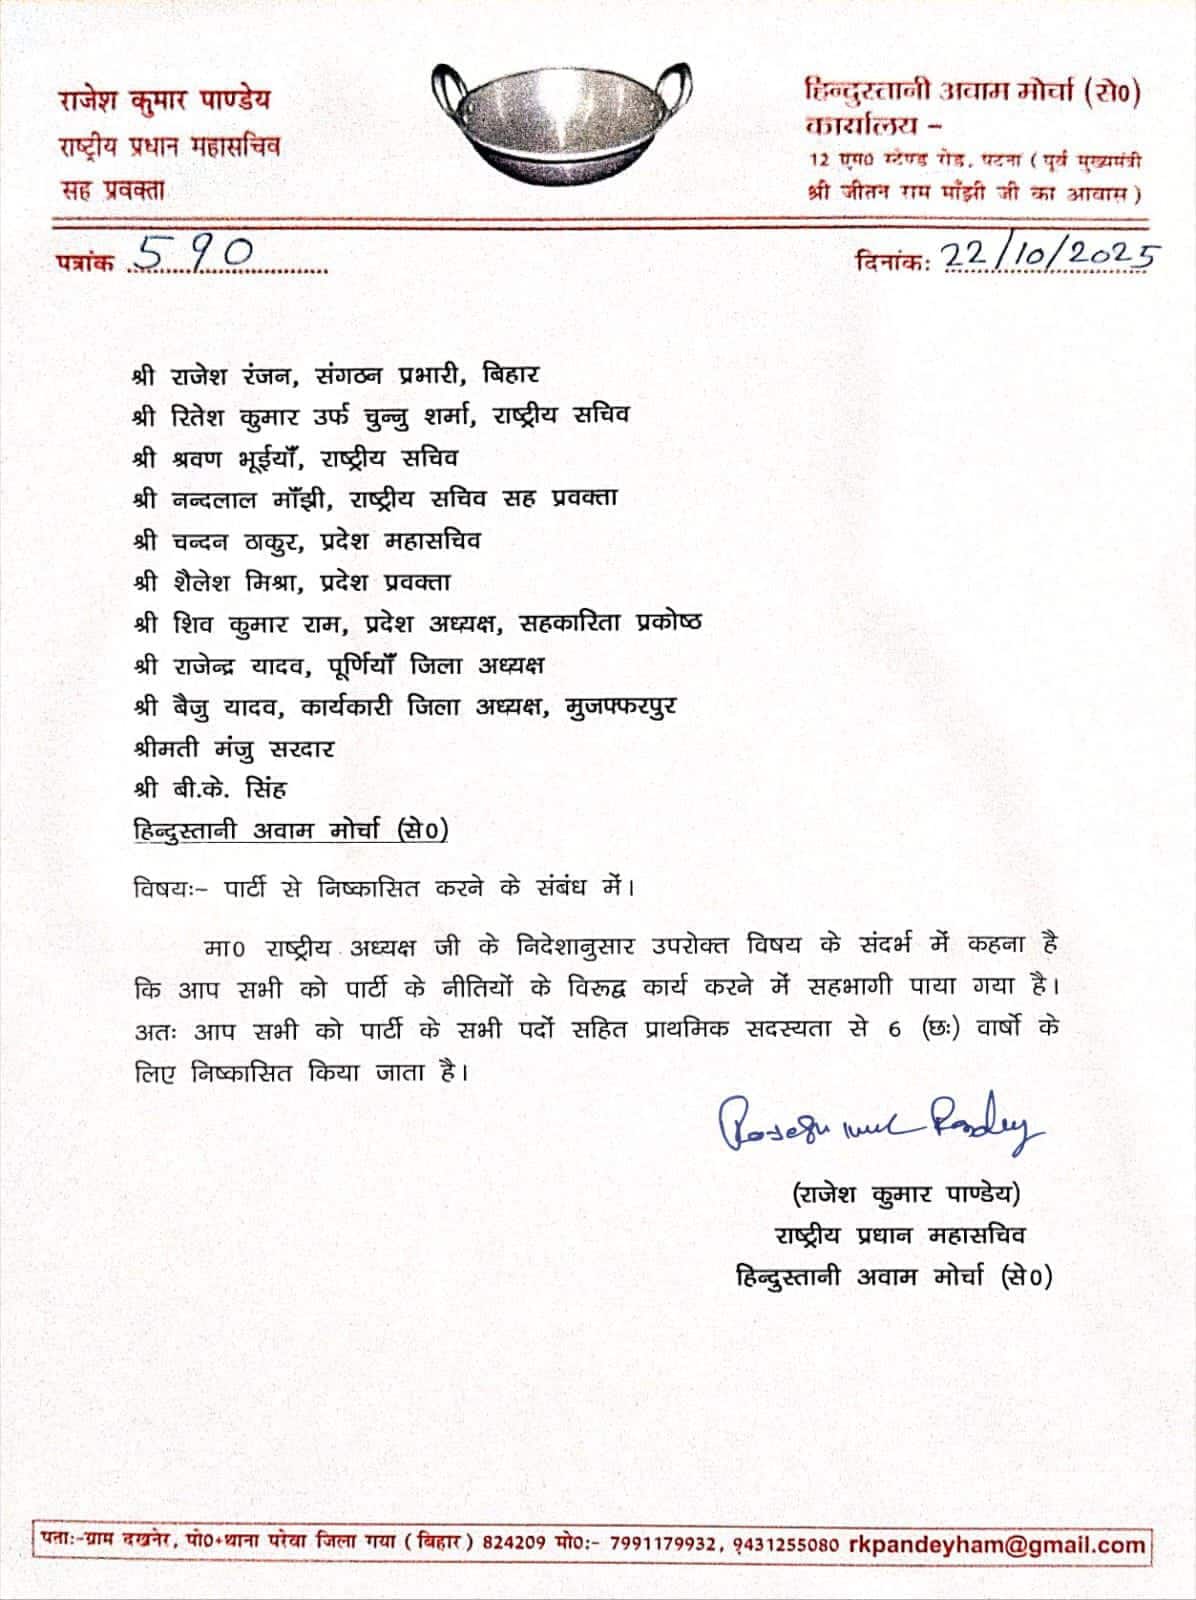 राजेश कुमार पाण्डेय
राष्ट्रीय प्रधान महासचिव
सह प्रवक्ता
हिन्दुस्तानी अवाम मोर्चा (से0)
कार्यालय –
12 एम0 स्टेण्ड रोड, पटना ( पूर्व मुख्यमंत्री
श्री जीतन राम माँझी जी का आवास )
पत्रांक 590
दिनांक: 22/10/2025
श्री राजेश रंजन, संगठन प्रभारी, बिहार
श्री रितेश कुमार उर्फ चुन्नु शर्मा, राष्ट्रीय सचिव
श्री श्रवण भूईयाँ, राष्ट्रीय सचिव
श्री नन्दलाल माँझी, राष्ट्रीय सचिव सह प्रवक्ता
श्री चन्दन ठाकुर, प्रदेश महासचिव
श्री शैलेश मिश्रा, प्रदेश प्रवक्ता
श्री शिव कुमार राम, प्रदेश अध्यक्ष, सहकारिता प्रकोष्ठ
श्री राजेन्द्र यादव, पूर्णियाँ जिला अध्यक्ष
श्री बैजु यादव, कार्यकारी जिला अध्यक्ष, मुजफ्फरपुर
श्रीमती मंजु सरदार
श्री बी.के. सिंह
हिन्दुस्तानी अवाम मोर्चा (से0)
विषयः– पार्टी से निष्कासित करने के संबंध में।
मा0 राष्ट्रीय अध्यक्ष जी के निदेशानुसार उपरोक्त विषय के संदर्भ में कहना है
कि आप सभी को पार्टी के नीतियों के विरूद्व कार्य करने में सहभागी पाया गया है।
अतः आप सभी को पार्टी के सभी पदों सहित प्राथमिक सदस्यता से 6 (छः) वार्षो के
लिए निष्कासित किया जाता है।
(राजेश कुमार पाण्डेय)
राष्ट्रीय प्रधान महासचिव
हिन्दुस्तानी अवाम मोर्चा (से0)
पता:-ग्राम दखनेर, पो0+थाना परेवा जिला गया ( बिहार ) 824209 मो0:- 7991179932, 9431255080 rkpandeyham@gmail.com